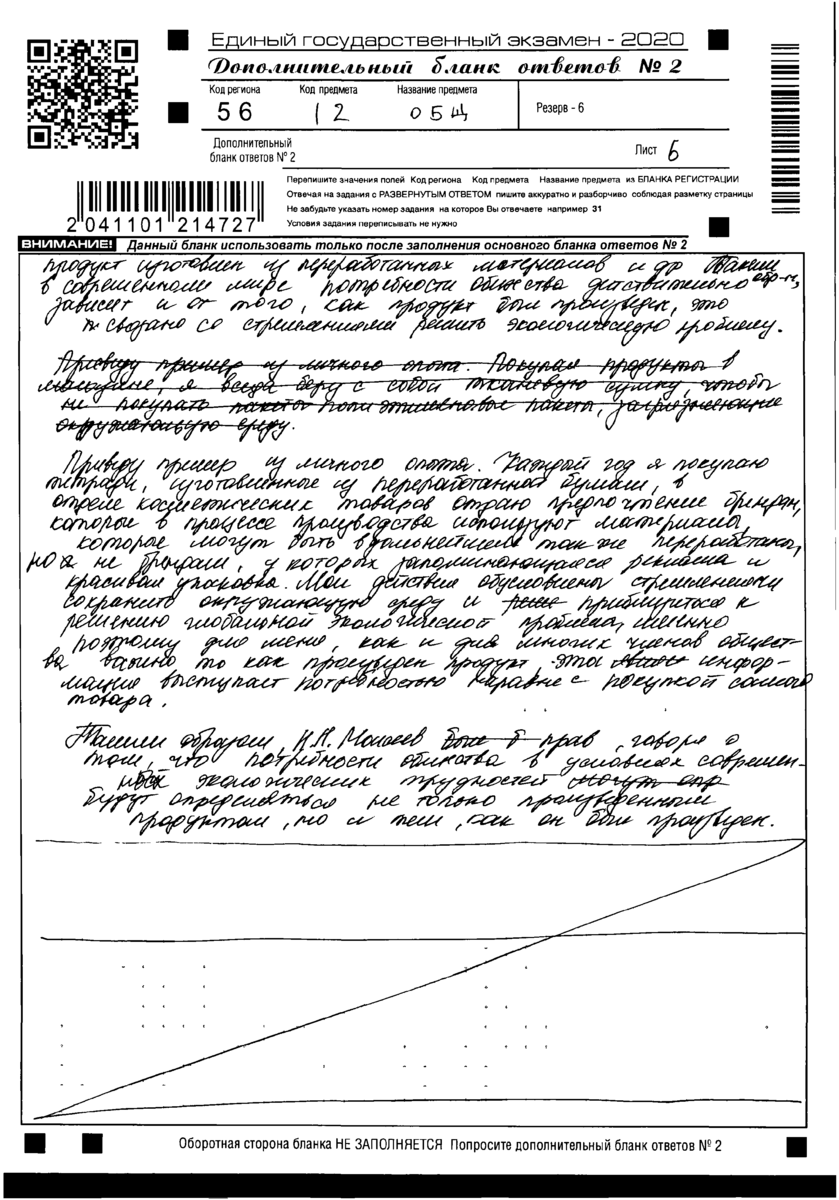 Единый государственный экзамен - 2020
Дополнительный бланк ответов № 2
Код региона Код предмета Название предмета
56 12 ОБЩ Резерв - 6
Дополнительный
бланк ответов № 2
Лист 6
Перепишите значения полей Код региона Код предмета Название предмета из БЛАНКА РЕГИСТРАЦИИ
Отвечая на задания с РАЗВЕРНУТЫМ ОТВЕТОМ пишите аккуратно и разборчиво соблюдая разметку страницы
Не забудьте указать номер задания на которое Вы отвечаете например 31
Условия задания переписывать не нужно
2041101 214727
ВНИМАНИЕ! Данный бланк использовать только после заполнения основного бланка ответов № 2
продукт изготовлен из переработанных материалов и др Таким обр-м,
в современном мире потребности общества действительно
зависят и от того, как продукт был произведен, это
связано со стремлениями решить экологическую проблему.
Приведу пример из личного опыта. Покупая продукты в
магазине, я всегда беру с собой тканевую сумку, чтобы
не покупать пакеты полиэтиленовые пакеты, загрязняющие
окружающую среду.
Приведу пример из личного опыта. Каждый год я покупаю
тетради, изготовленные из переработанной бумаги, в
отделе косметических товаров отдаю предпочтение брендам,
которые в процессе производства используют материалы,
которые могут быть в дальнейшем так же переработаны,
но а не брендам, у которых запоминающаяся реклама и
красивая упаковка. Мои действия обусловлены стремлением
сохранить окружающую среду и приблизиться к
решению глобальной экологической проблемы, именно
поэтому для меня, как и для многих членов общест-
ва важно то как произведен продукт, эта инфор-
мация выступает потребностью наравне с покупкой самого
товара.
Таким образом, Н.Н. Моисеев прав, говоря о
том, что потребности общества в условиях современ-
ных экологических трудностей могут опр
будут определяться не только произведенным
продуктом, но и тем, как он был произведен.
Оборотная сторона бланка НЕ ЗАПОЛНЯЕТСЯ Попросите дополнительный бланк ответов № 2